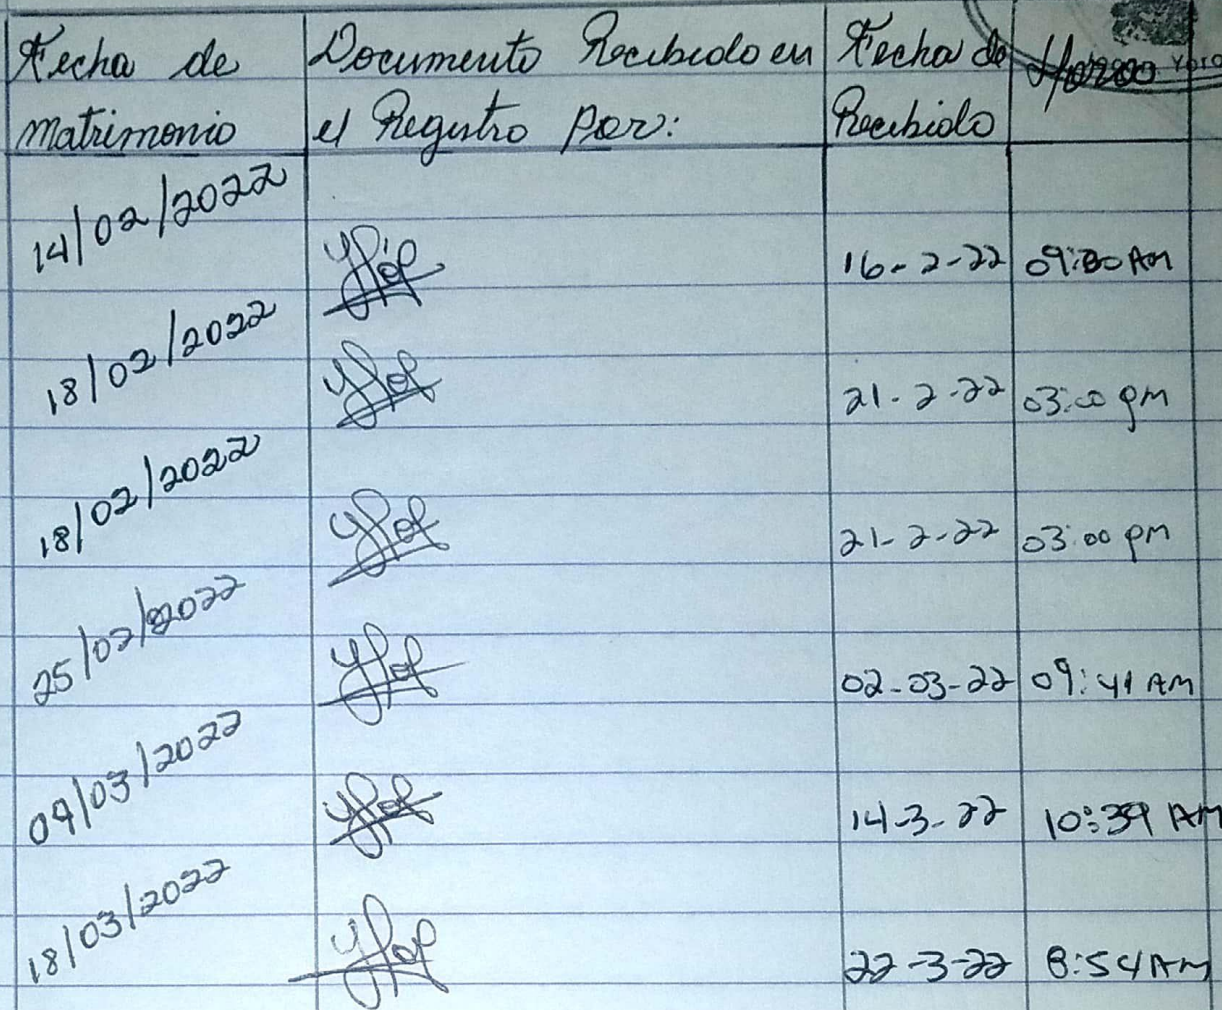 Fecha de matrimonio
Documento Recibido en el Registro por:
Fecha de Recibido
14/02/2022
16-2-22
18/02/2022
21-2-22 03:00 pm
18/02/2022
21-2-22 03:00 pm
25/02/2022
02-03-22 09:41 AM
09/03/2022
14-3-22 10:39 AM
18/03/2022
22-3-22 8:54 AM